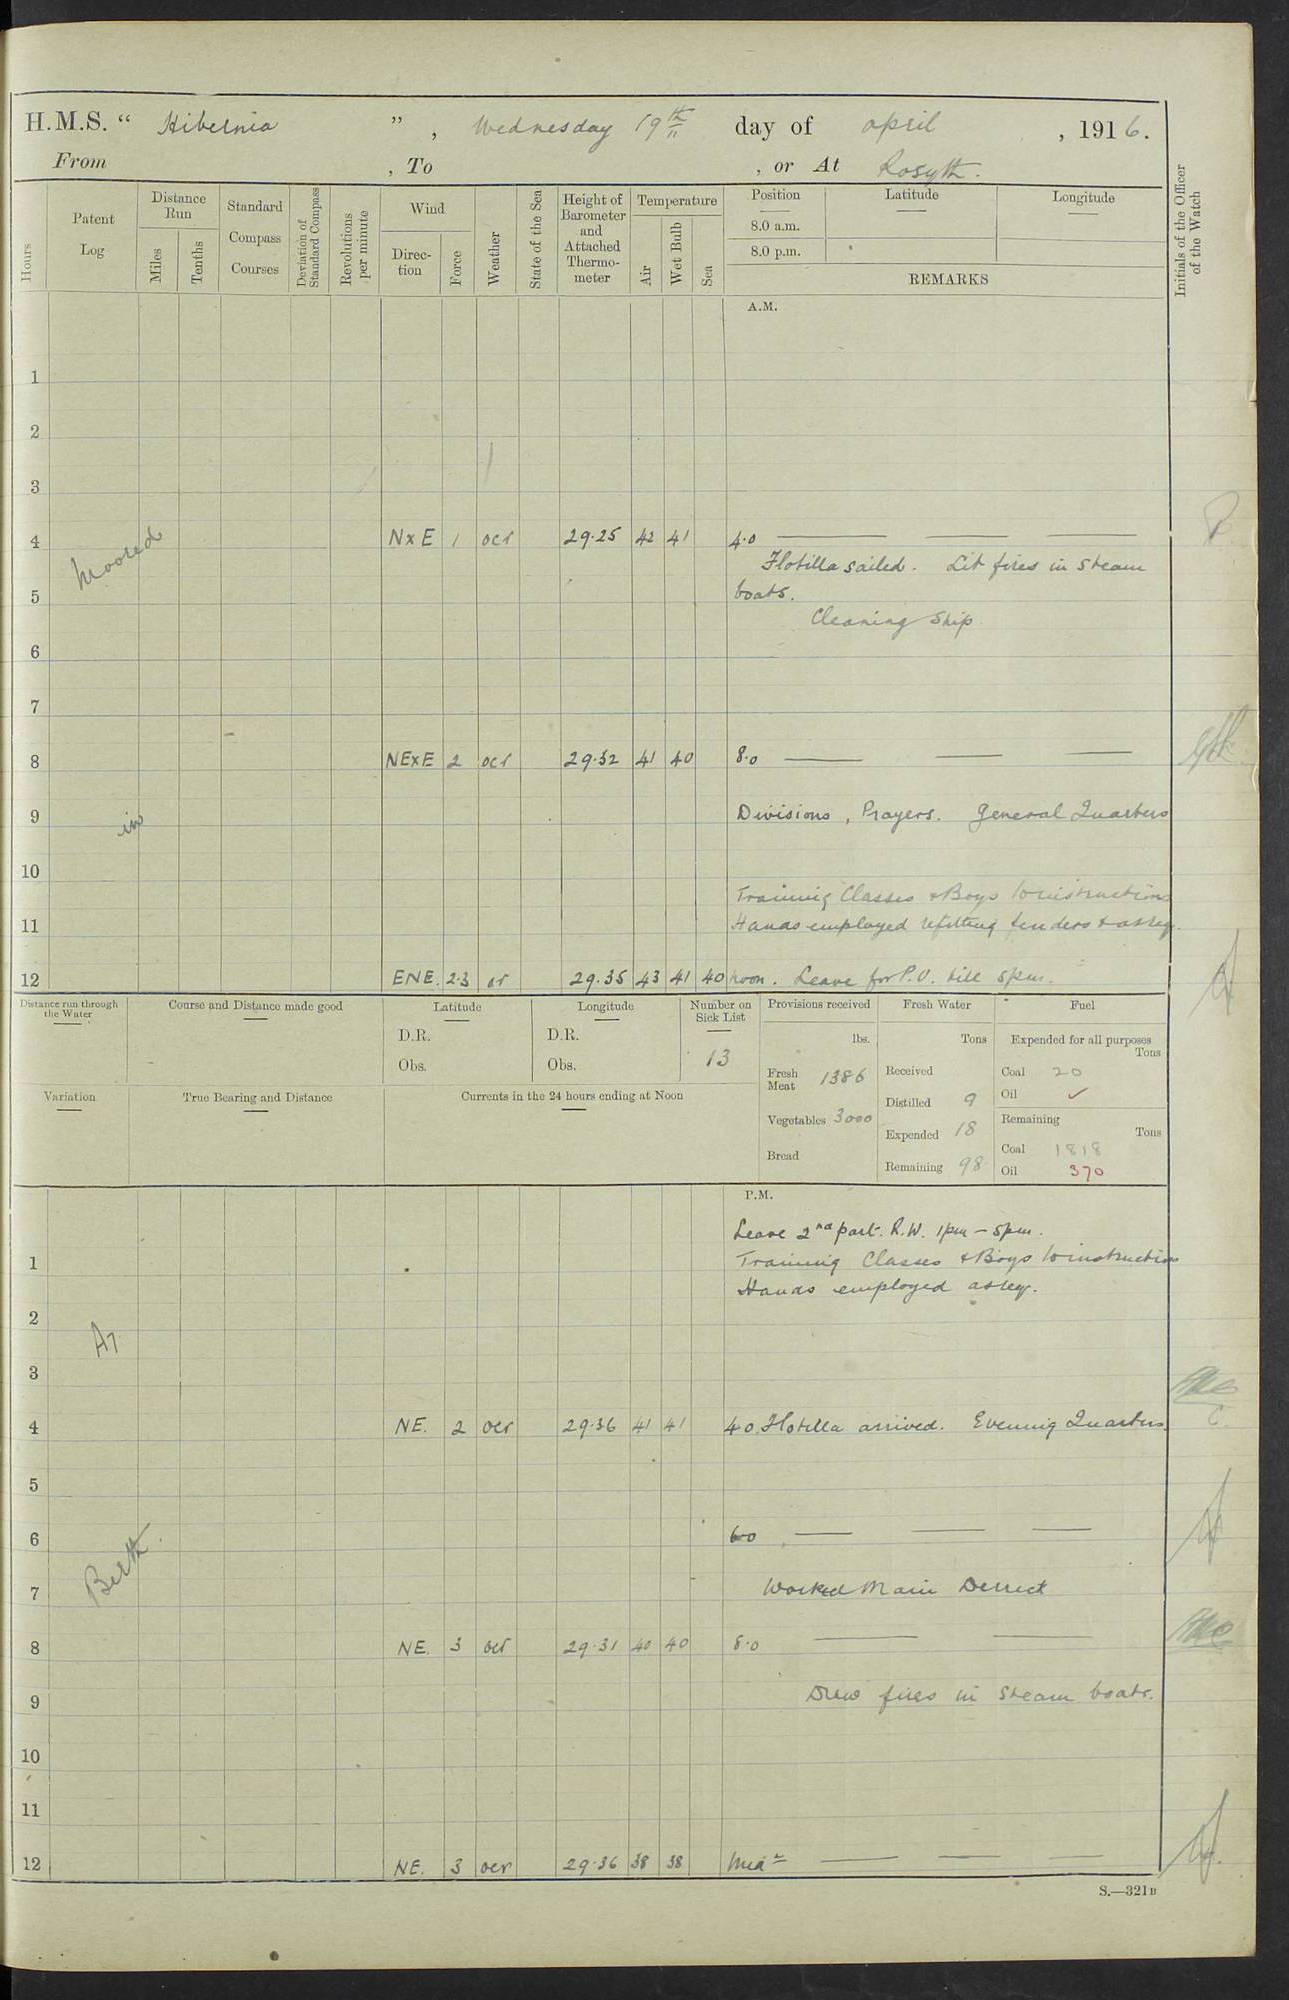 H.M.S. “ Hibernia ” , Wednesday 19th day of April , 1916.
From , To , or At Rosyth.
Hours
Patent Log
Distance Run
Miles
Tenths
Standard Compass Courses
Deviation of Standard Compass
Revolutions per minute
Wind
Direction
Force
Weather
State of the Sea
Height of Barometer and Attached Thermometer
Temperature
Air
Wet Bulb
Sea
Position
8.0 a.m.
8.0 p.m.
Latitude
Longitude
REMARKS
Initials of the Officer of the Watch
A.M.
1
2
3
4 NxE 1 ocr 29.25 42 41 4.0
Flotilla sailed. Lit fires in steam
5 boats.
Cleaning Ship
6
7
8 NExE 2 ocr 29.32 41 40 8.0
9 Divisions, Prayers. General Quarters
10
Training Classes & Boys to instruction
11 Hands employed refitting fenders & as req.
12 ENE. 2.3 or 29.35 43 41 40 noon. Leave for P.O. till 5pm.
Moored
in
Distance run through the Water
Course and Distance made good
Latitude
D.R.
Obs.
Longitude
D.R.
Obs.
Number on Sick List
13
Provisions received
lbs.
Fresh Meat 1386
Vegetables 3000
Bread
Fresh Water
Tons
Received
Distilled 9
Expended 18
Remaining 98
Fuel
Expended for all purposes
Tons
Coal 20
Oil ✓
Remaining
Tons
Coal 1818
Oil 370
Variation
True Bearing and Distance
Currents in the 24 hours ending at Noon
P.M.
Leave 2nd part. R.W. 1pm – 5pm.
1 Training Classes & Boys to instruction
Hands employed as req.
2
3
4 NE. 2 ocr 29.36 41 41 4.0 Flotilla arrived. Evening Quarters.
5
6 6.0
7 Worked Main Derrick
8 NE. 3 ocr 29.31 40 40 8.0
9 Drew fires in steam boats.
10
11
12 NE. 3 ocr 29.36 38 38 Midt
Berth.
S.—321B